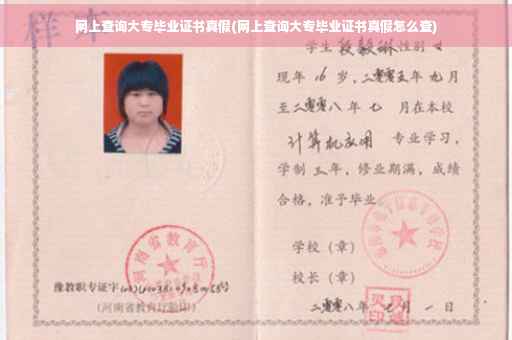 网上查询大专毕业证书真假(网上查询大专毕业证书真假怎么查)
样本
学生 段毅琳 性别 女
现年 16 岁，二零零五年 九月
至二零零八年 七 月在本校
计算机应用 专业学习，
学制 三 年，修业期满，成绩
合格，准予毕业
学校（章）
校长（章）
二零零八年 七 月 一 日
河南省教育厅
豫教职专证字
(河南省教育厅验印)